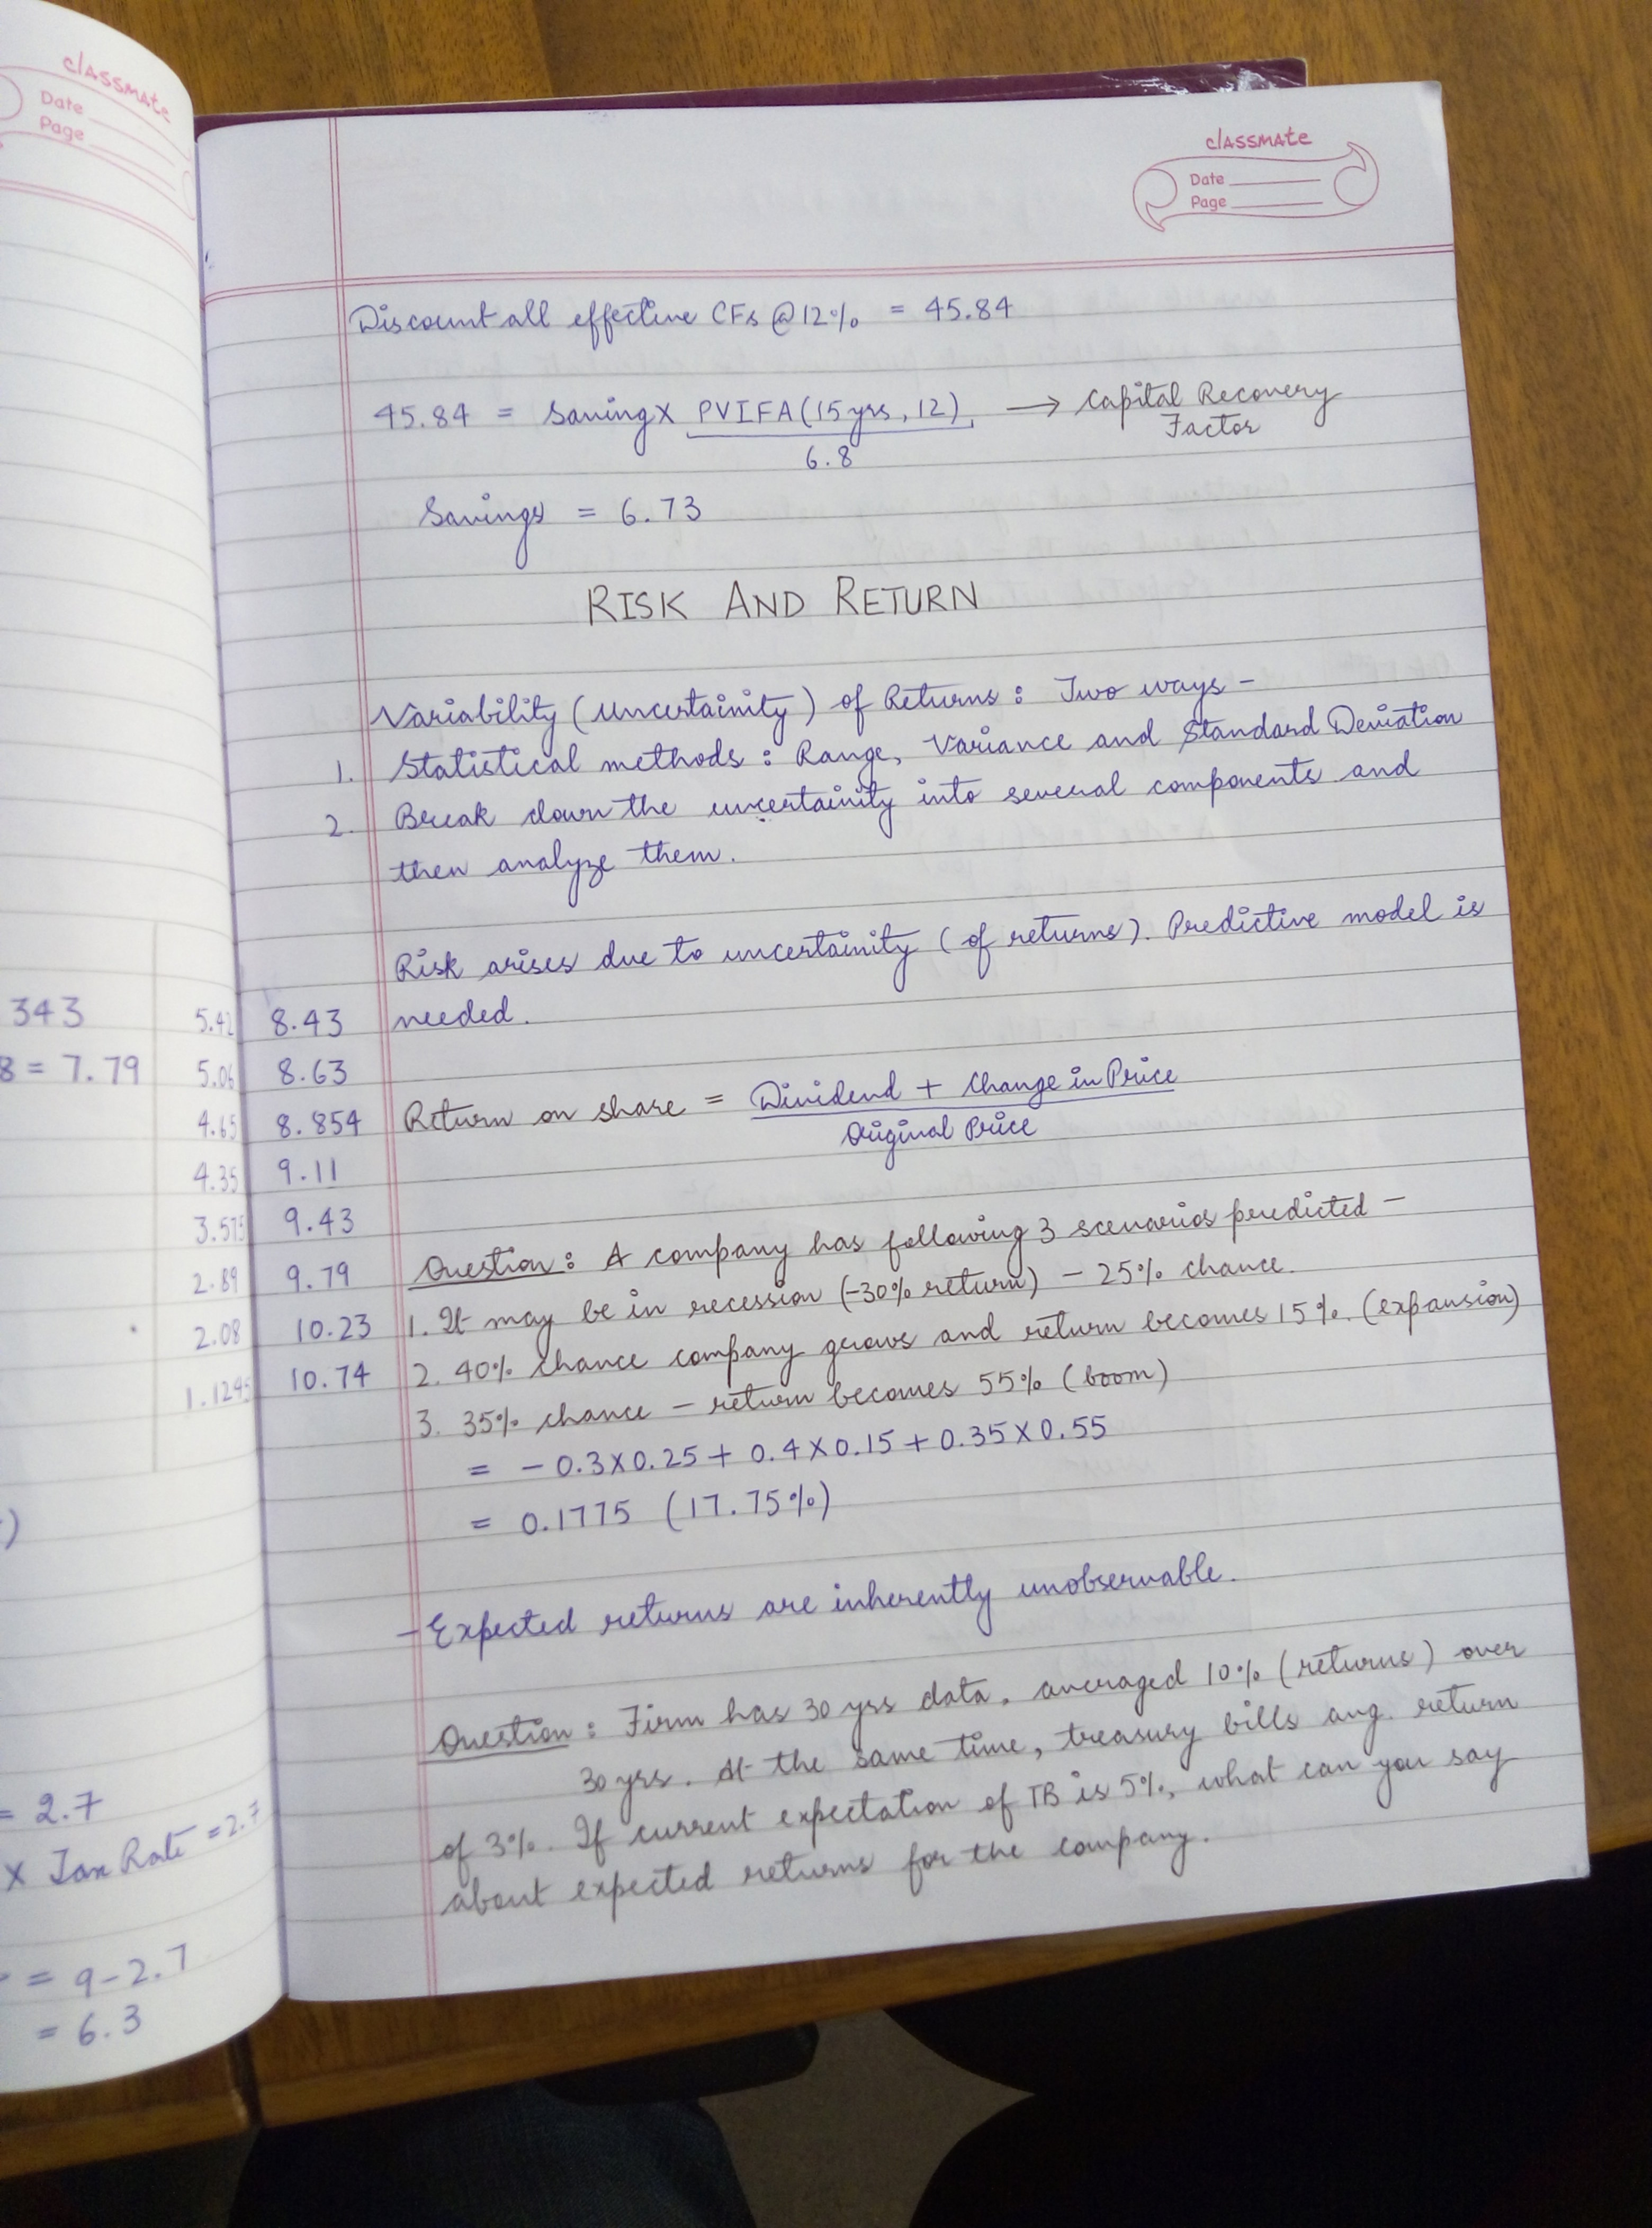 classmate
Date
Page
343
8 = 7.79
5.42
5.06
4.65
4.35
3.575
2.89
2.08
1.1295
= 2.7
x Tax Rate = 2.7
= 9-2.7
= 6.3
classmate
Date
Page
Discount all effective CFs @12% = 45.84
45.84 = Saving x PVIFA (15yrs, 12) → Capital Recovery
Factor
6.8
Savings = 6.73
RISK AND RETURN
Variability (uncertainity) of Returns : Two ways -
1. Statistical methods : Range, Variance and Standard Deviation
2. Break down the uncertainity into several components and
then analyze them.
Risk arises due to uncertainity (of returns). Predictive model is
8.43 needed.
8.63
8.854 Return on share = Dividend + Change in Price
Original Price
9.11
9.43
9.79 Question : A company has following 3 scenarios predicted -
10.23 1. It may be in recession (-30% return) - 25% chance.
10.74 2. 40% chance company grows and return becomes 15%. (expansion)
3. 35% chance - return becomes 55% (boom)
= - 0.3x0.25 + 0.4x0.15 + 0.35x0.55
= 0.1775 (17.75%)
- Expected returns are inherently unobservable.
Question : Firm has 30 yrs data, averaged 10% (returns) over
30 yrs. At the same time, treasury bills avg. return
of 3%. If current expectation of TB is 5%, what can you say
about expected returns for the company.